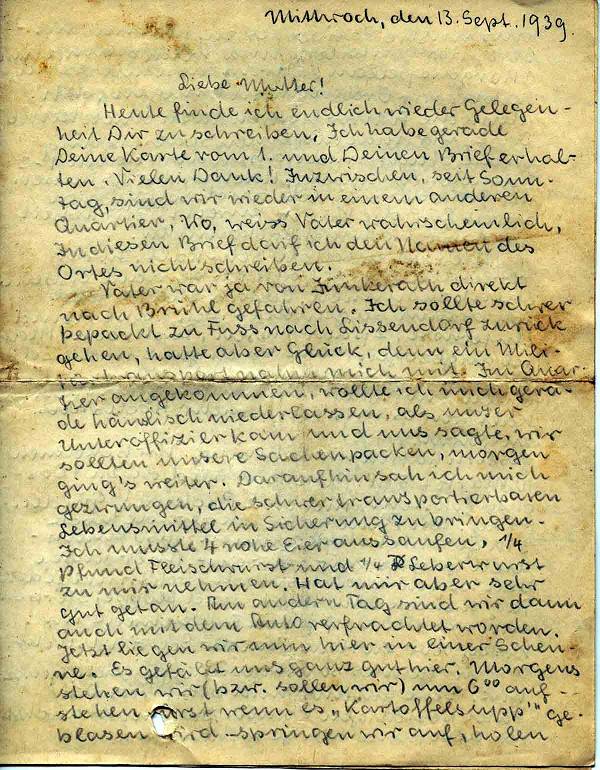 Mittwoch, den 13. Sept. 1939.
Liebe Mutter!
Heute finde ich endlich wieder Gelegen-
heit Dir zu schreiben. Ich habe gerade
Deine Karte vom 1. und Deinen Brief erhal-
ten. Vielen Dank! Inzwischen, seit Sonn-
tag, sind wir wieder in einem anderen
Quartier, Wo, weiss Vater wahrscheinlich,
In diesen Brief darf ich den Namen des
Ortes nicht schreiben.
Vater war ja von Jünkerath direkt
nach Brühl gefahren. Ich sollte schwer
bepackt zu Fuss nach Lissendorf zurück
gehen, hatte aber Glück, denn ein Mili-
tärtransport nahm mich mit. Im Quar-
tier angekommen, wollte ich mich gera-
de häuslich niederlassen, als unser
Unteroffizier kam und uns sagte, wir
sollten unsere Sachen packen, morgen
ging's weiter. Daraufhin sah ich mich
gezwungen, die schwer transportierbaren
Lebensmittel in Sicherung zu bringen.
Ich musste 4 rohe Eier aussaufen, 1/4
Pfund Fleischwurst und 1/4 Leberwurst
zu mir nehmen. Hat mir aber sehr
gut getan. Am andern Tag sind wir dann
auch mit dem Auto verfrachtet worden.
Jetzt liegen wir nun hier in einer Scheu-
ne. Es gefällt uns ganz gut hier. Morgens
stehen wir (bzw. sollen wir) um 6⁰⁰ auf-
stehen erst wenn es „Kartoffelsupp'" ge-
blasen wird springen wir auf, holen